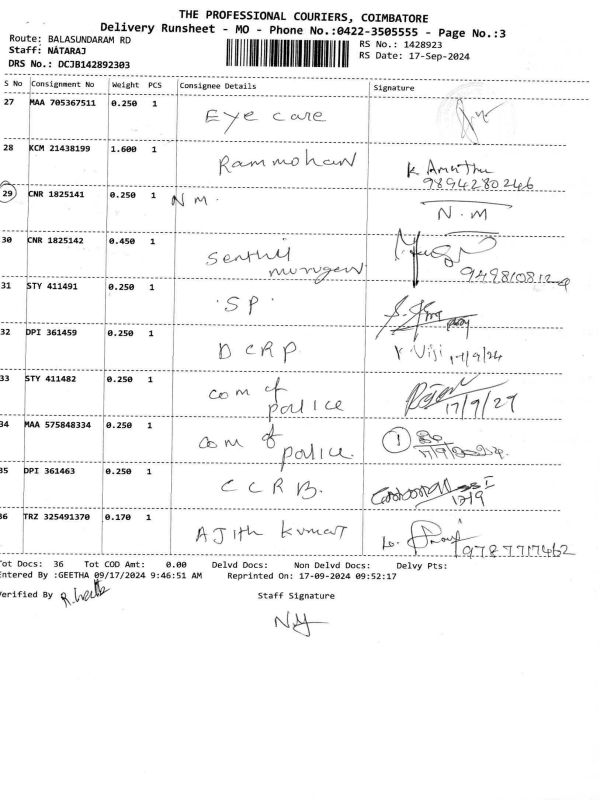 THE PROFESSIONAL COURIERS, COIMBATORE
Delivery Runsheet - MO - Phone No.:0422-3505555 - Page No.:3
Route: BALASUNDARAM RD
RS No.: 1428923
Staff: NATARAJ
RS Date: 17-Sep-2024
DRS No.: DCJB142892303
S No Consignment No Weight PCS Consignee Details Signature
27 MAA 705367511 0.250 1 Eye care
28 KCM 21438199 1.600 1 Rammohan K Amuthu
9894280246
29 CNR 1825141 0.250 1 N M. N.M
30 CNR 1825142 0.450 1 Senthil
murugan
31 STY 411491 0.250 1 SP
32 DPI 361459 0.250 1 DCRP r Viji 17/9/24
33 STY 411482 0.250 1 com of
police 17/9/24
34 MAA 575848334 0.250 1 com of
police. 1
35 DPI 361463 0.250 1 CCRB. 17/9
36 TRZ 325491370 0.170 1 AJith kumar 9787717462
Tot Docs: 36 Tot COD Amt: 0.00 Delvd Docs: Non Delvd Docs: Delvy Pts:
Entered By :GEETHA 09/17/2024 9:46:51 AM Reprinted On: 17-09-2024 09:52:17
Verified By
Staff Signature